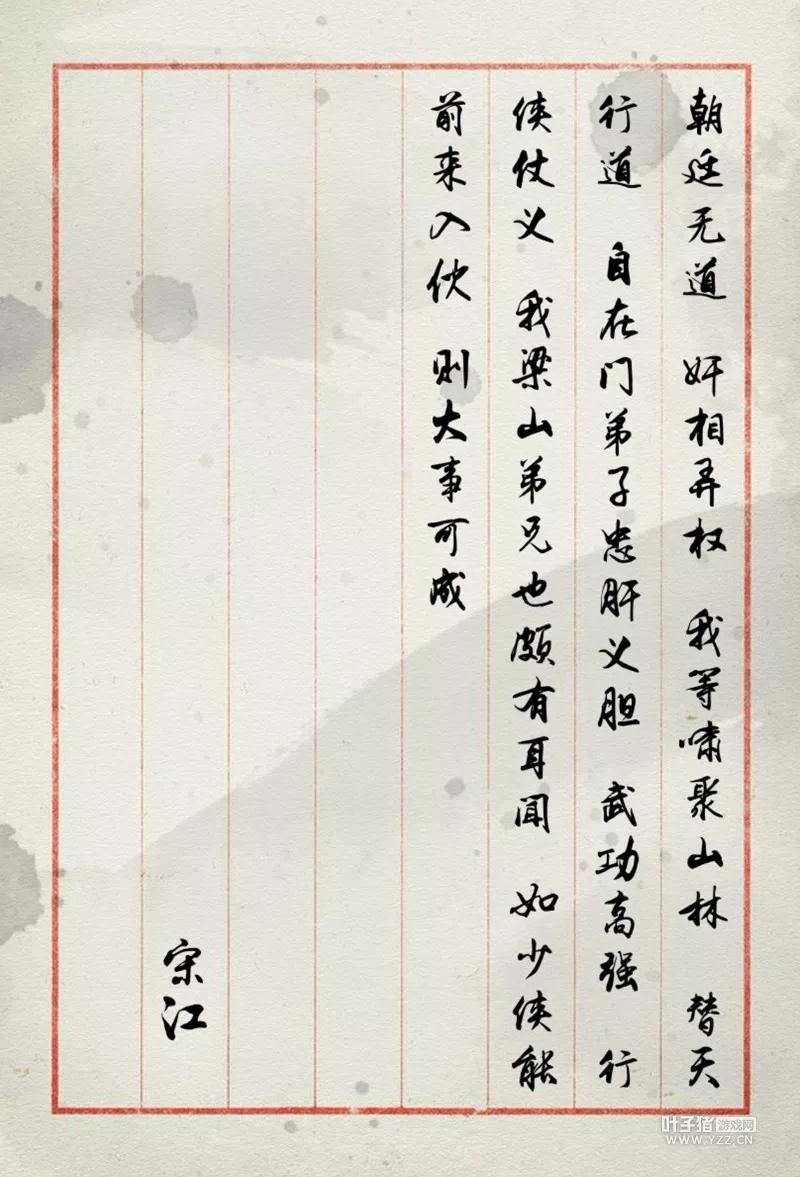 朝廷无道 奸相弄权 我等啸聚山林 替天
行道 自在门弟子忠肝义胆 武功高强 行
侠仗义 我梁山弟兄也颇有耳闻 如少侠能
前来入伙 则大事可成
宋江
叶子猪游戏网
WWW.YZZ.CN